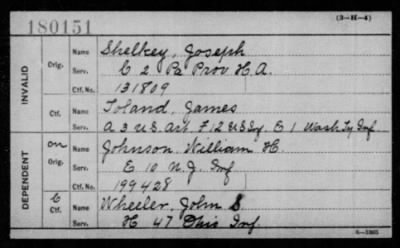 180151
(3-H-4)
INVALID
Orig.
Name Shelkey, Joseph
Serv. C 2 Pa Prov H.A.
Ctf. No. 131809
Ctf.
Name Toland, James
Serv. A 3 U.S. Art. F 12 U.S. Inf. B 1 Wash Ty Inf
DEPENDENT
on
Orig.
Name Johnson, William H.
Serv. E 10 N.J. Inf
Ctf. No. 199428
C
Ctf.
Name Wheeler, John S
Serv. H 47 Ohio Inf.